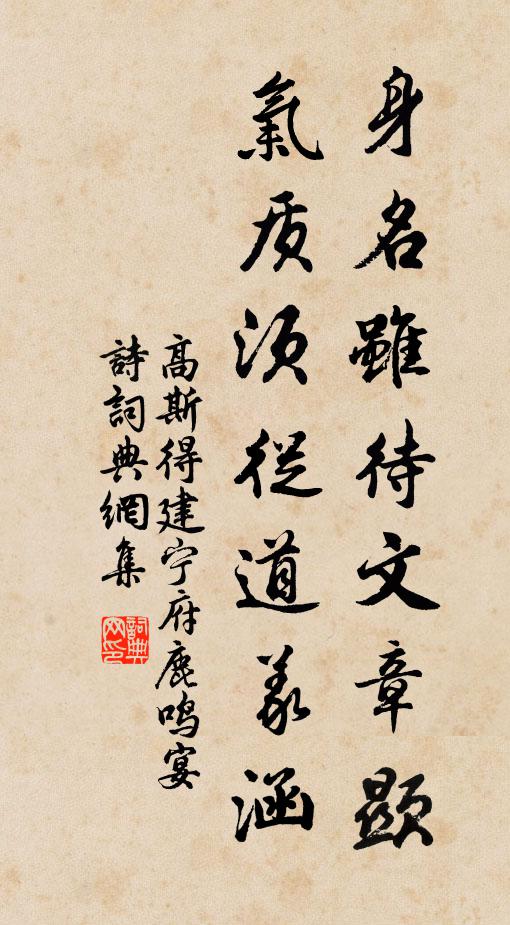 身名雖待文章顯
氣质须從道義涵
高斯得建宁府鹿鸣宴
詩詞典網集
詞典网印